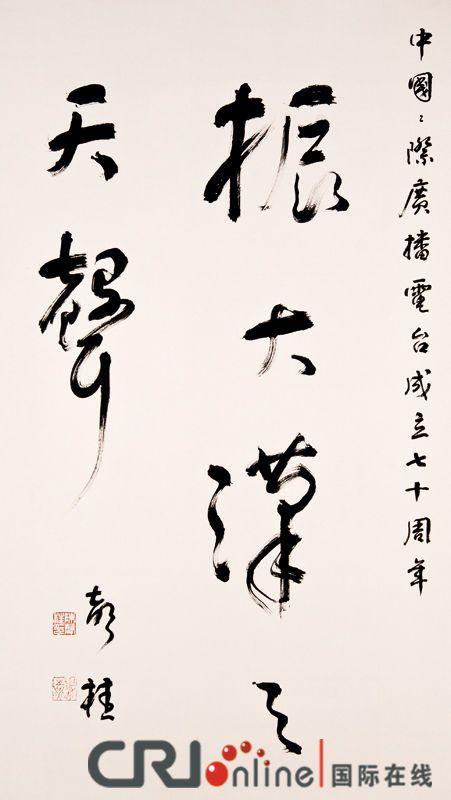 中國〻際廣播電台成立七十周年
振大漢之
天聲
CRI online 国际在线